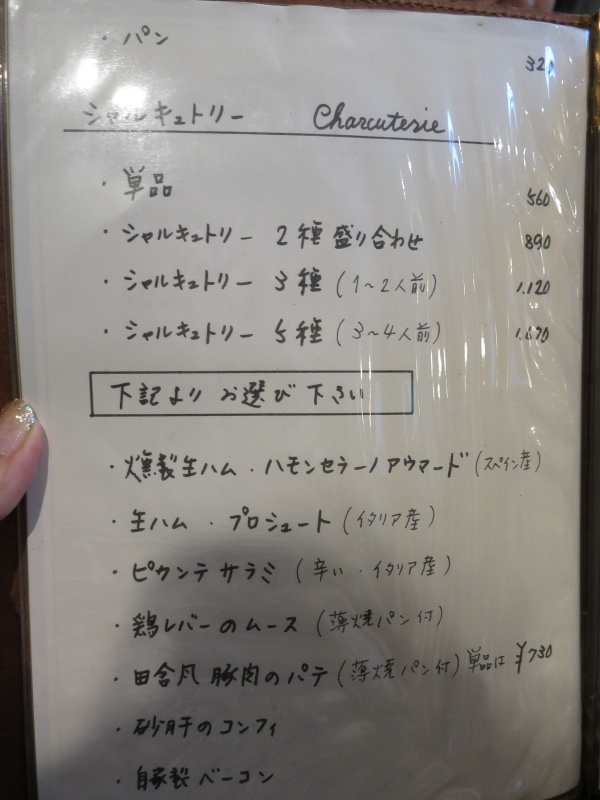 ・パン 320
シャルキュトリー Charcuterie
・単品 560
・シャルキュトリー 2種盛り合わせ 890
・シャルキュトリー 3種 (1〜2人前) 1,120
・シャルキュトリー 5種 (3〜4人前) 1,670
下記より お選び下さい
・燻製生ハム・ハモンセラーノアウマード (スペイン産)
・生ハム・プロシュート (イタリア産)
・ピカンテサラミ (辛い・イタリア産)
・鶏レバーのムース (薄焼パン付)
・田舎風 豚肉のパテ (薄焼パン付) 単品は ¥730
・砂肝のコンフィ
・自家製ベーコン